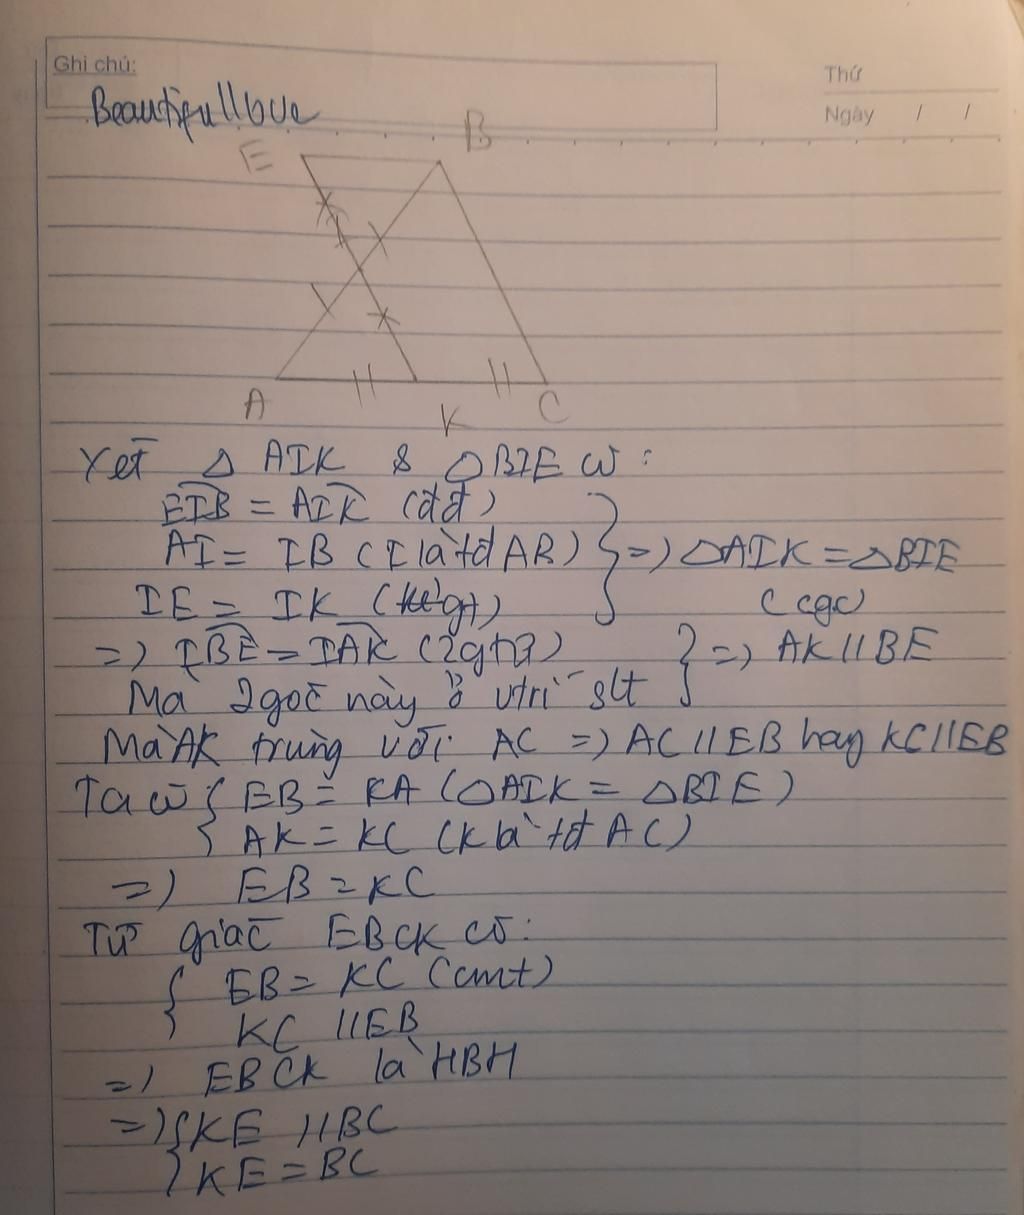 Ghi chú:
Thứ
Ngày / /
Beautifullove
E B
I
A K C
Xét △ AIK & △BIE có :
EIB = AIK (đđ)
AI = IB (I là tđ AB) } => △AIK = △BIE
IE = IK (gt) (cgc)
=> IBE = IAK (2gtứ)
Mà 2 góc này ở vtrí slt } => AK // BE
Mà AK trùng với AC => AC // EB hay KC // EB
Ta có { EB = KA (△AIK = △BIE)
AK = KC (K là tđ AC)
=> EB = KC
Tứ giác EBCK có:
{ EB = KC (cmt)
KC // EB
=> EBCK là HBH
=> { KE // BC
KE = BC